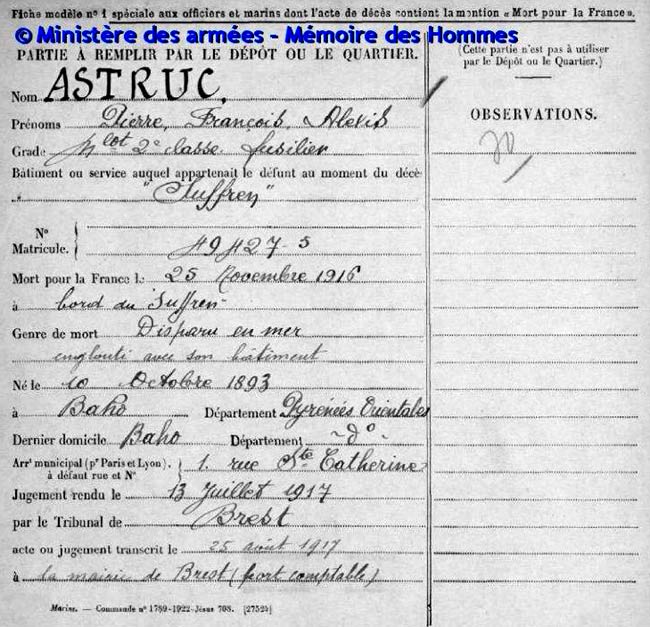 Fiche modèle n° 1 spéciale aux officiers et marins dont l'acte de décès contient la mention « Mort pour la France ».
© Ministère des armées - Mémoire des Hommes
PARTIE À REMPLIR PAR LE DÉPÔT OU LE QUARTIER.
Nom ASTRUC,
Prénoms Pierre, François, Alexis
Grade Mlot 2e classe fusilier
Bâtiment ou service auquel appartenait le défunt au moment du décès
"Suffren"
N°
Matricule. 49427-5
Mort pour la France le 25 Novembre 1916
à bord du Suffren
Genre de mort Disparu en mer
englouti avec son bâtiment
Né le 10 Octobre 1893
à Baho Département Pyrénées Orientales
Dernier domicile Baho Département -d°-
Arrt municipal (pr Paris et Lyon),
à défaut rue et N° 1. rue Ste Catherine
Jugement rendu le 13 Juillet 1917
par le Tribunal de Brest
acte ou jugement transcrit le 25 août 1917
à la mairie de Brest (port comptable)
Marine. — Commande n° 1789-1922-Jésus 708. [27524]
(Cette partie n'est pas à utiliser
par le Dépôt ou le Quartier.)
OBSERVATIONS.